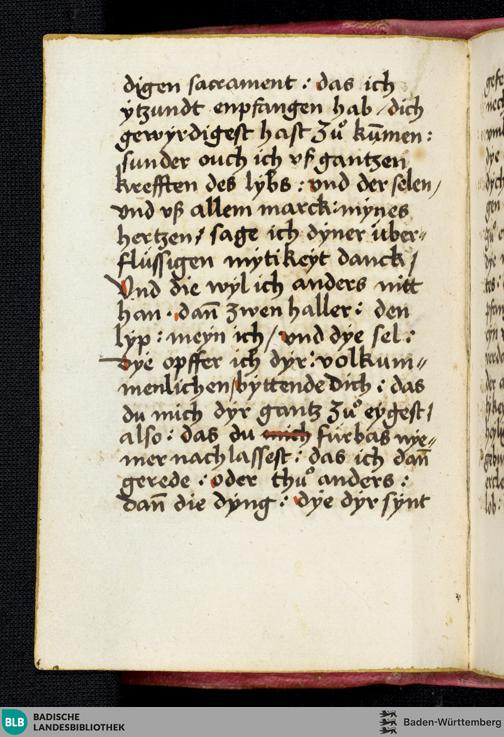 digen sacrament : das ich
ytzundt enpfangen hab / dich
gewyrdigest hast zuͦ kūmen :
sunder ouch ich vß gantzen
krefften des lybs : vnd der selen /
vnd vß allem marck : mynes
hertzen / sage ich dyner über=
flüssigen mytikeyt danck /
Vnd die wyl ich anders nitt
han . dañ zwen haller : den
lyp : meyn ich / vnd dye sel :
dye opffer ich dyr : volkum=
menlichen / byttende dich : das
du mich dyr gantz zuͦ eygest /
also : das du mich fürbas nye=
mer nach lassest : das ich dañ
gerede : oder thuͦ anders :
dañ die dyng : dye dyr synt
BLB BADISCHE
LANDESBIBLIOTHEK
Baden-Württemberg